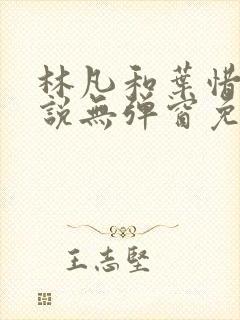 林凡和葉惜
説無彈窗免
王志堅